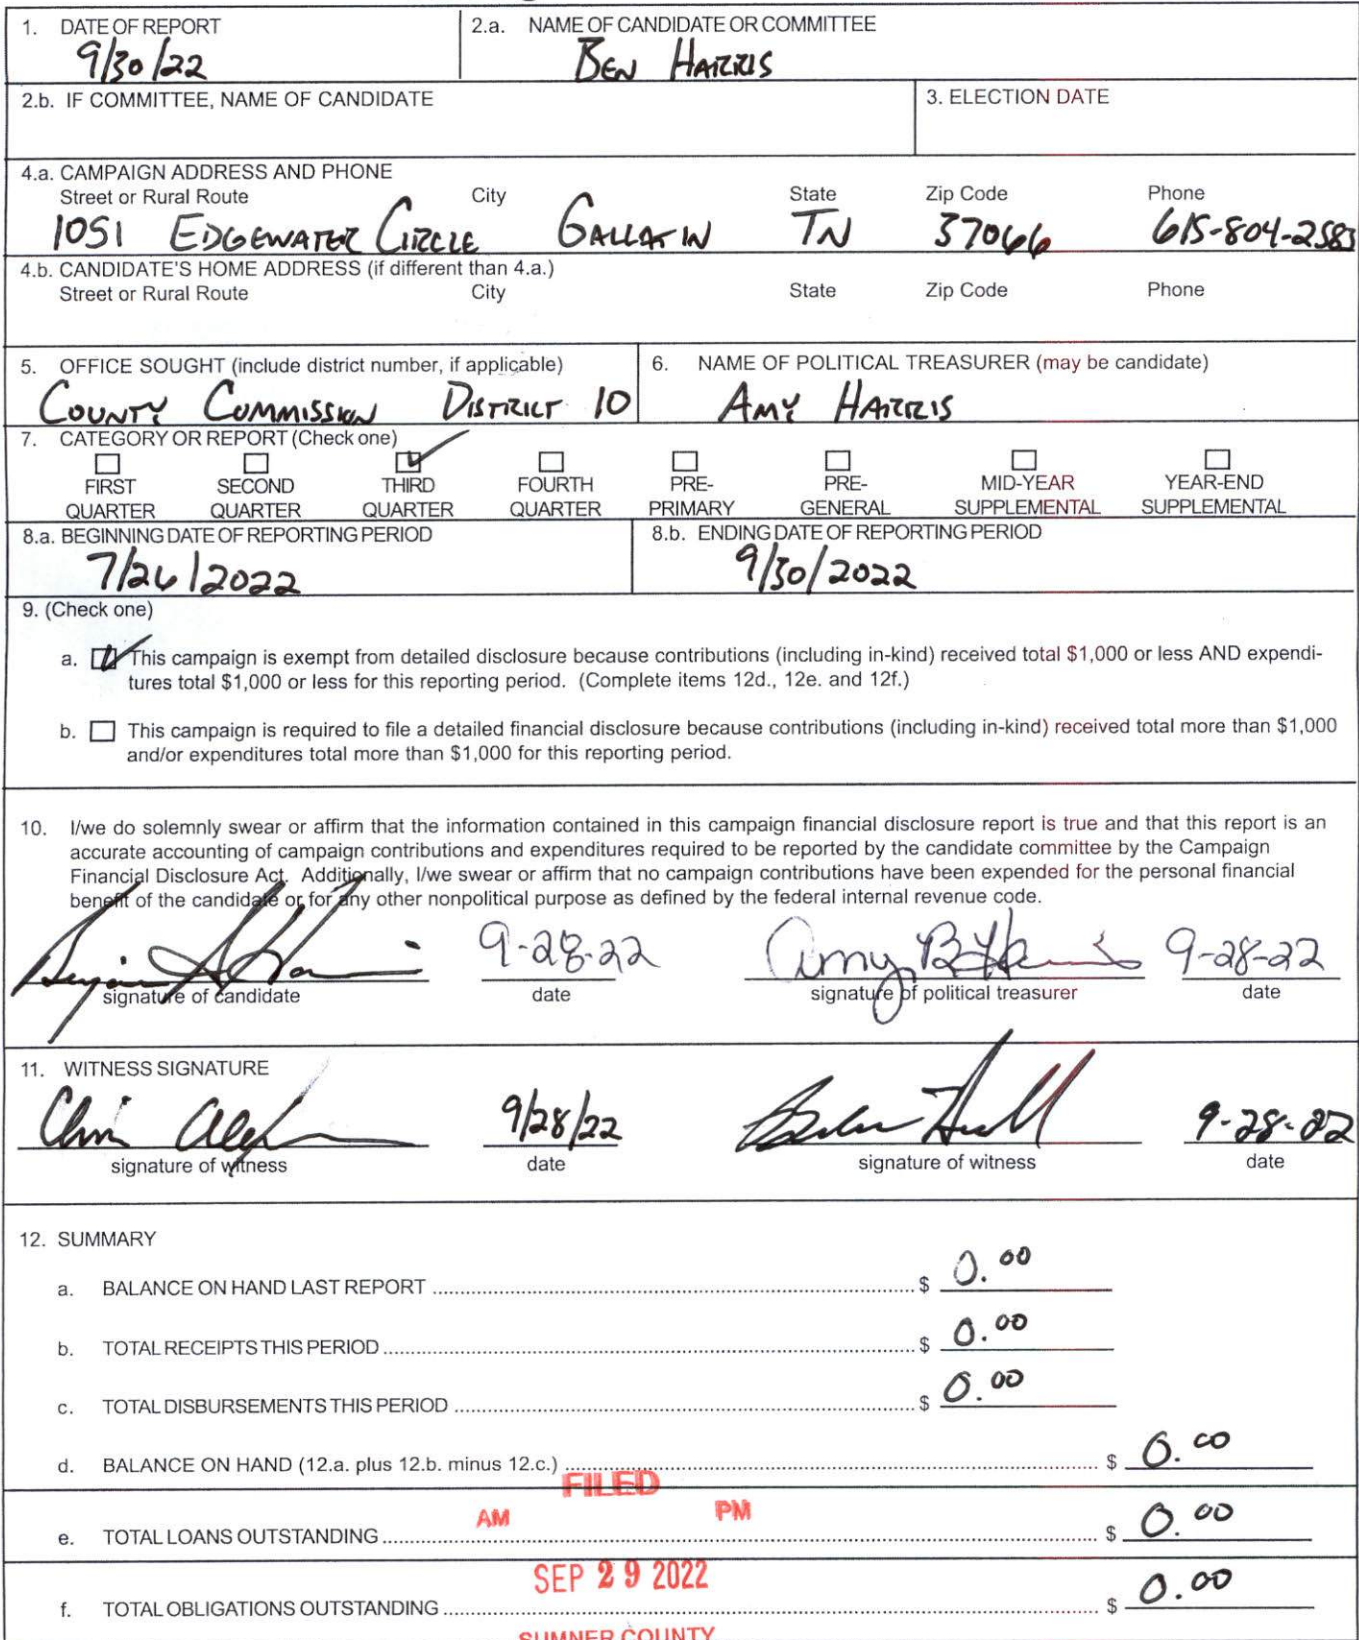 1. DATE OF REPORT 2.a. NAME OF CANDIDATE OR COMMITTEE
9/30/22 BEN HARRIS
2.b. IF COMMITTEE, NAME OF CANDIDATE 3. ELECTION DATE
4.a. CAMPAIGN ADDRESS AND PHONE
Street or Rural Route City State Zip Code Phone
1051 EDGEWATER CIRCLE GALLATIN TN 37066 615-804-2583
4.b. CANDIDATE'S HOME ADDRESS (if different than 4.a.)
Street or Rural Route City State Zip Code Phone
5. OFFICE SOUGHT (include district number, if applicable) 6. NAME OF POLITICAL TREASURER (may be candidate)
COUNTY COMMISSION DISTRICT 10 AMY HARRIS
7. CATEGORY OR REPORT (Check one)
FIRST SECOND THIRD FOURTH PRE- PRE- MID-YEAR YEAR-END
QUARTER QUARTER QUARTER QUARTER PRIMARY GENERAL SUPPLEMENTAL SUPPLEMENTAL
8.a. BEGINNING DATE OF REPORTING PERIOD 8.b. ENDING DATE OF REPORTING PERIOD
7/26/2022 9/30/2022
9. (Check one)
a. This campaign is exempt from detailed disclosure because contributions (including in-kind) received total $1,000 or less AND expendi-
tures total $1,000 or less for this reporting period. (Complete items 12d., 12e. and 12f.)
b. This campaign is required to file a detailed financial disclosure because contributions (including in-kind) received total more than $1,000
and/or expenditures total more than $1,000 for this reporting period.
10. I/we do solemnly swear or affirm that the information contained in this campaign financial disclosure report is true and that this report is an
accurate accounting of campaign contributions and expenditures required to be reported by the candidate committee by the Campaign
Financial Disclosure Act. Additionally, I/we swear or affirm that no campaign contributions have been expended for the personal financial
benefit of the candidate or for any other nonpolitical purpose as defined by the federal internal revenue code.
9-28-22 Amy B Harris 9-28-22
signature of candidate date signature of political treasurer date
11. WITNESS SIGNATURE
9/28/22 9-28-22
signature of witness date signature of witness date
12. SUMMARY
a. BALANCE ON HAND LAST REPORT $ 0.00
b. TOTAL RECEIPTS THIS PERIOD $ 0.00
c. TOTAL DISBURSEMENTS THIS PERIOD $ 0.00
d. BALANCE ON HAND (12.a. plus 12.b. minus 12.c.) $ 0.00
FILED
AM PM
e. TOTAL LOANS OUTSTANDING $ 0.00
SEP 29 2022
f. TOTAL OBLIGATIONS OUTSTANDING $ 0.00
SUMNER COUNTY